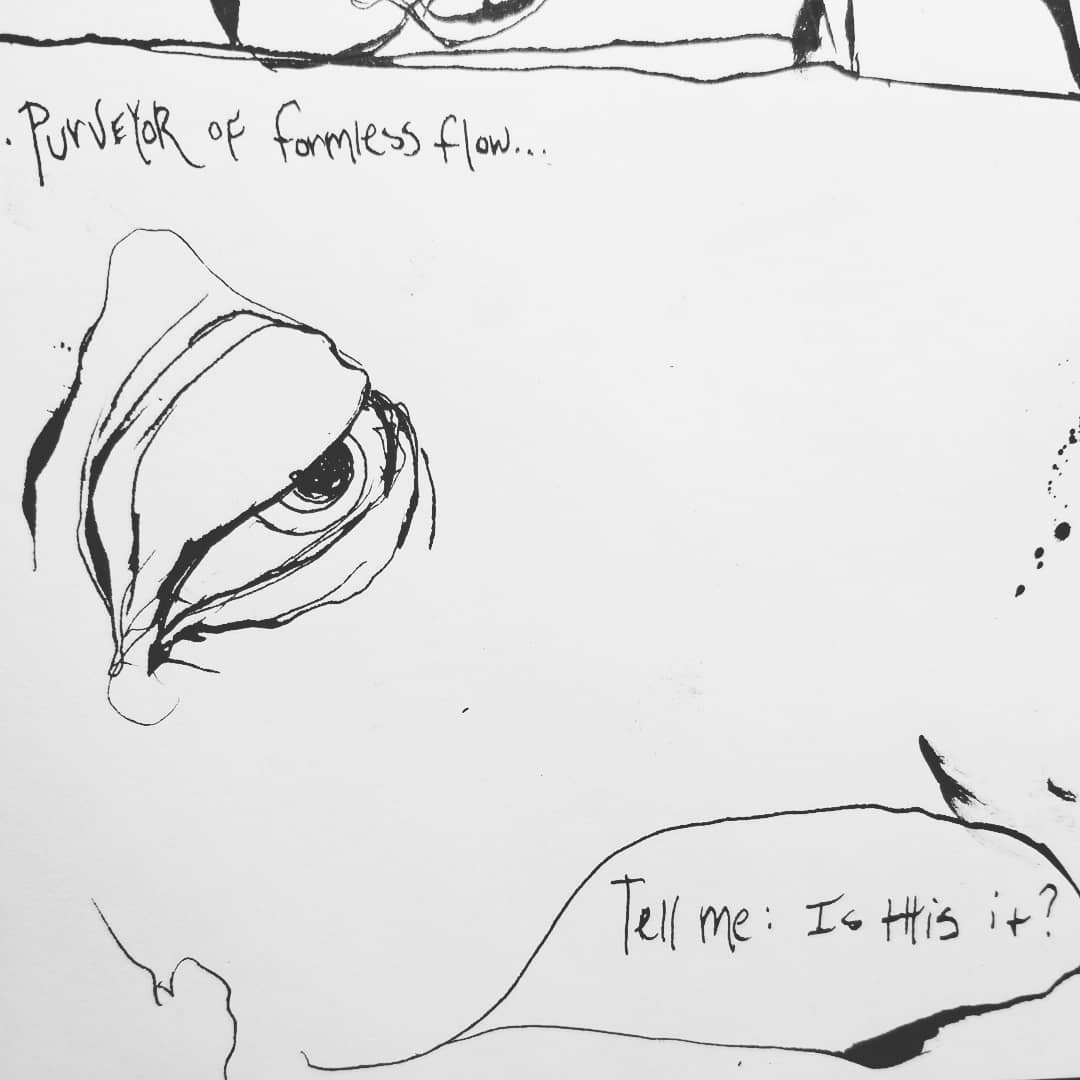 . PURVEYOR OF formless flow...
Tell me: Is this it?